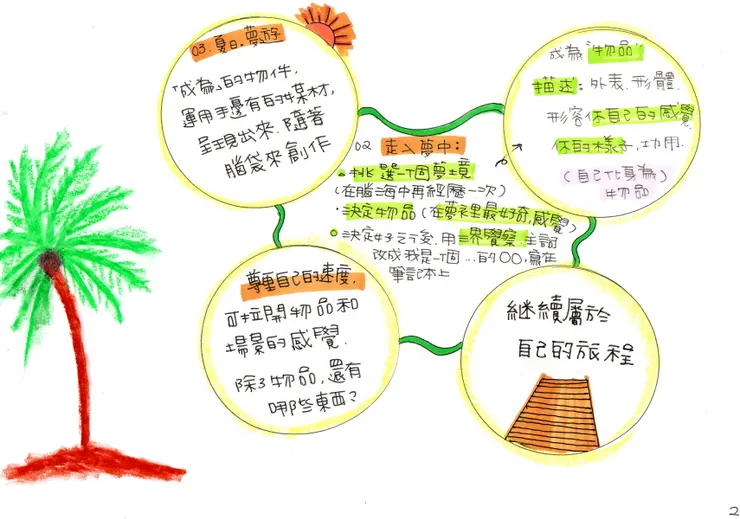 03.夏日.夢游
「成為」的物件,
運用手邊有的媒材,
呈現出來.隨著
腦袋來創作
成為"物品"
描述:外表.形體.
形容你自己的感覺.
你的樣子,功用.
(自己化身為)
物品
02 走入夢中:
挑選一個夢境
(在腦海中再經歷一次)
決定物品(在夢裡最好奇,感覺)
決定好了後,用 覺察.主詞
改成我是一個...的○○,寫在
筆記本上
尊重自己的速度.
可拉開物品和
場景的感覺.
除了物品,還有
哪些東西?
繼續屬於
自己的旅程
2